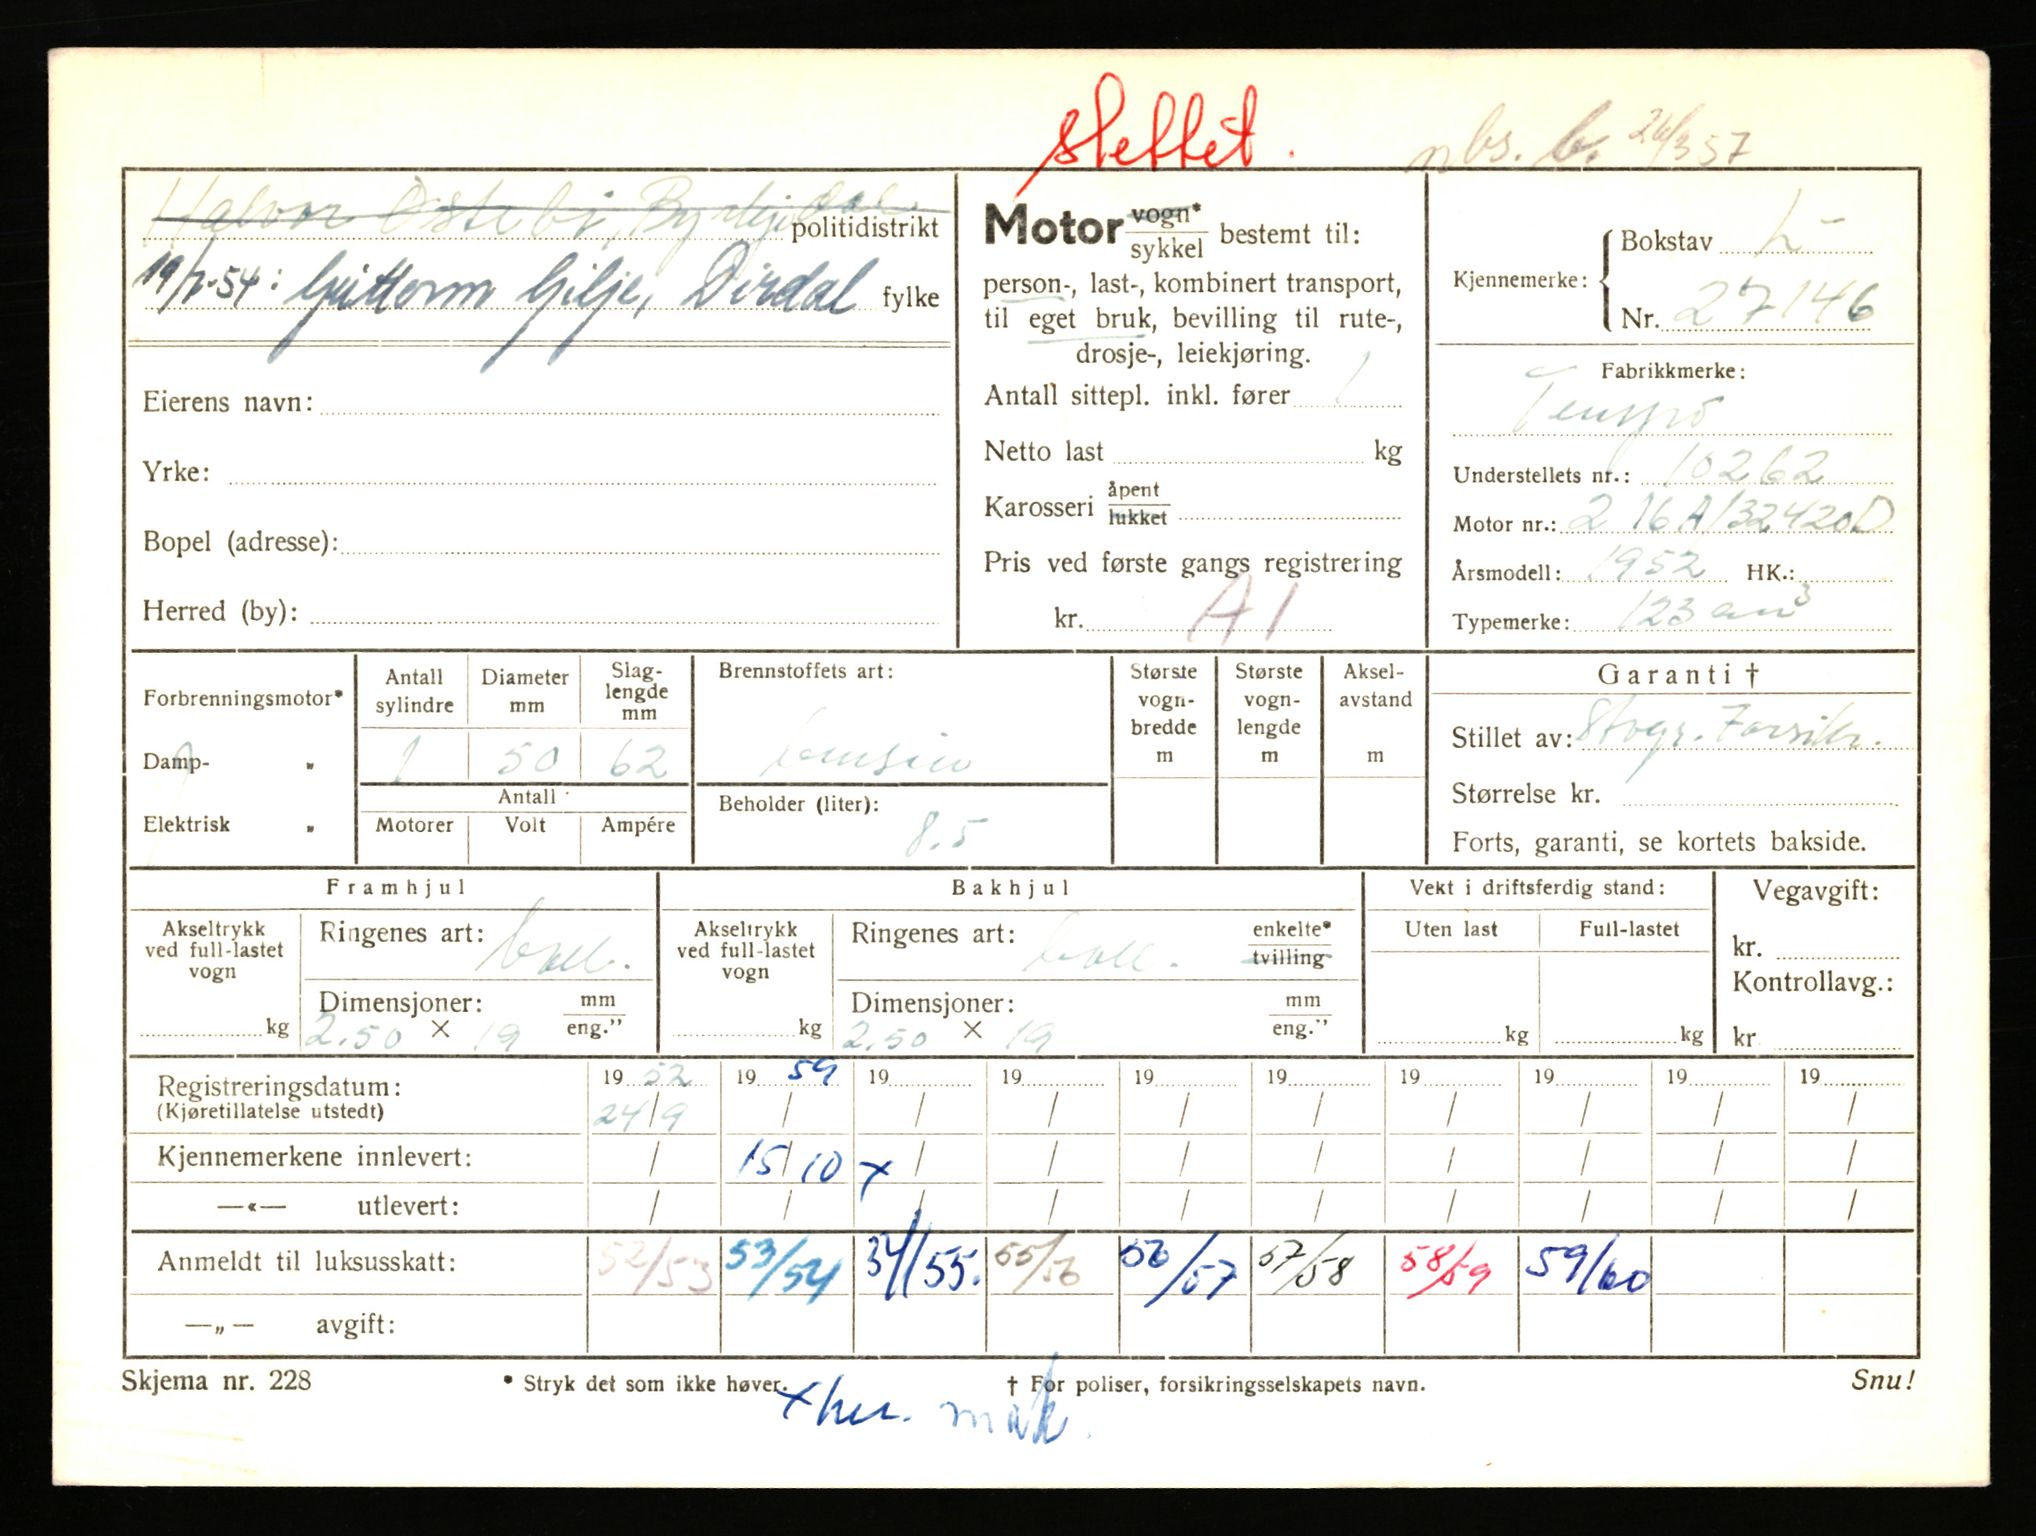 slettet.
nbs. b. 24/3 57
Halvor Østebø, Byrkjedal politidistrikt
19/7-54: Guttorm Gilje, Dirdal fylke
Eierens navn:
Yrke:
Bopel (adresse):
Herred (by):
Motor vogn* sykkel bestemt til:
person-, last-, kombinert transport,
til eget bruk, bevilling til rute-,
drosje-, leiekjøring.
Antall sittepl. inkl. fører 1
Netto last kg
Karosseri åpent lukket
Pris ved første gangs registrering
kr. A1
Kjennemerke: Bokstav L-
Nr. 27146
Fabrikkmerke:
Tempo
Understellets nr.: 10262
Motor nr.: 2 16A132420D
Årsmodell: 1952 HK.:
Typemerke: 123 cm3
Forbrenningsmotor*
Damp- „
Elektrisk „
Antall sylindre 1
Diameter mm 50
Slag-lengde mm 62
Antall
Motorer Volt Ampére
Brennstoffets art:
bensin
Beholder (liter):
8.5
Største vogn-bredde m
Største vogn-lengde m
Aksel-avstand m
Garanti †
Stillet av: Stvgr. Forsikr.
Størrelse kr.
Forts, garanti, se kortets bakside.
Framhjul
Akseltrykk ved full-lastet vogn
kg
Ringenes art: ball.
Dimensjoner: mm eng."
2.50 × 19
Bakhjul
Akseltrykk ved full-lastet vogn
kg
Ringenes art: ball. enkelte* tvilling
Dimensjoner: mm eng."
2.50 × 19
Vekt i driftsferdig stand:
Uten last Full-lastet
kg kg
Vegavgift:
kr.
Kontrollavg.:
kr.
Registreringsdatum: 19 52 19 59 19 19 19 19 19 19 19 19
(Kjøretillatelse utstedt) 24/9 / / / / / / / / /
Kjennemerkene innlevert: / 15/10 x / / / / / / / /
—«— utlevert: / / / / / / / / / /
Anmeldt til luksusskatt: 52/53 53/54 54/55. 55/56 56/57 57/58 58/59 59/60
—„— avgift:
Skjema nr. 228
* Stryk det som ikke høver.
† For poliser, forsikringsselskapets navn.
Snu!
x her. mak.